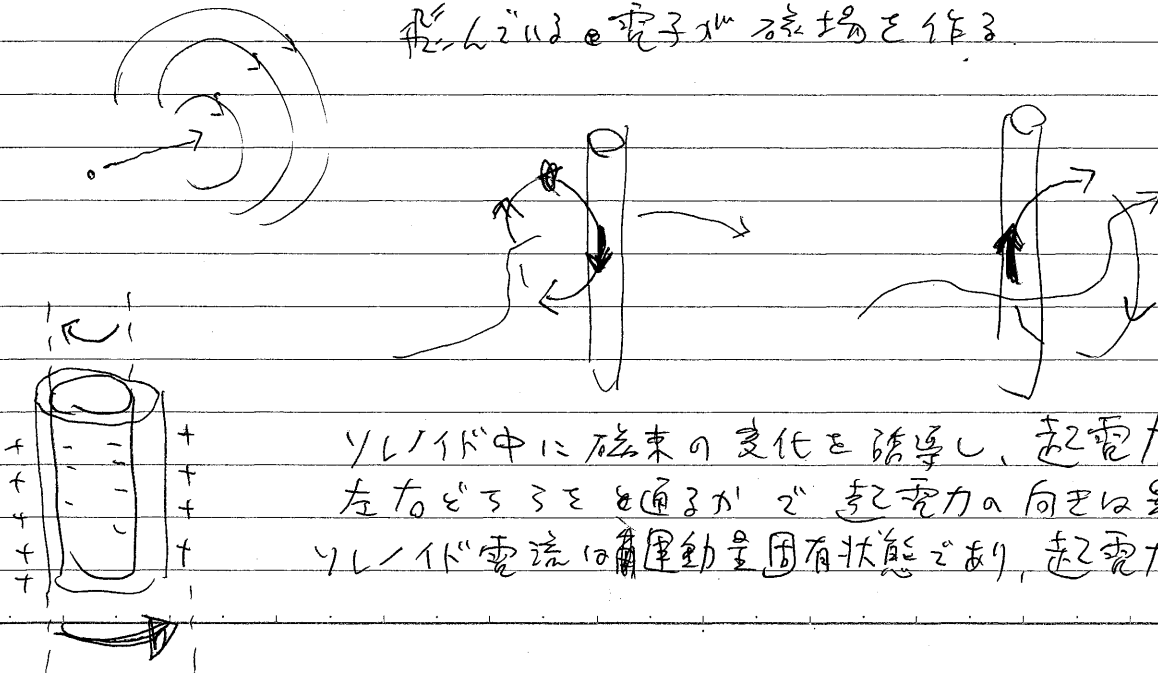 飛んでいる電子が磁場を作る.
ソレノイド中に磁束の変化を誘導し、起電力
左右どちらを通るかで起電力の向きは
ソレノイド電流は運動量固有状態であり、起電力